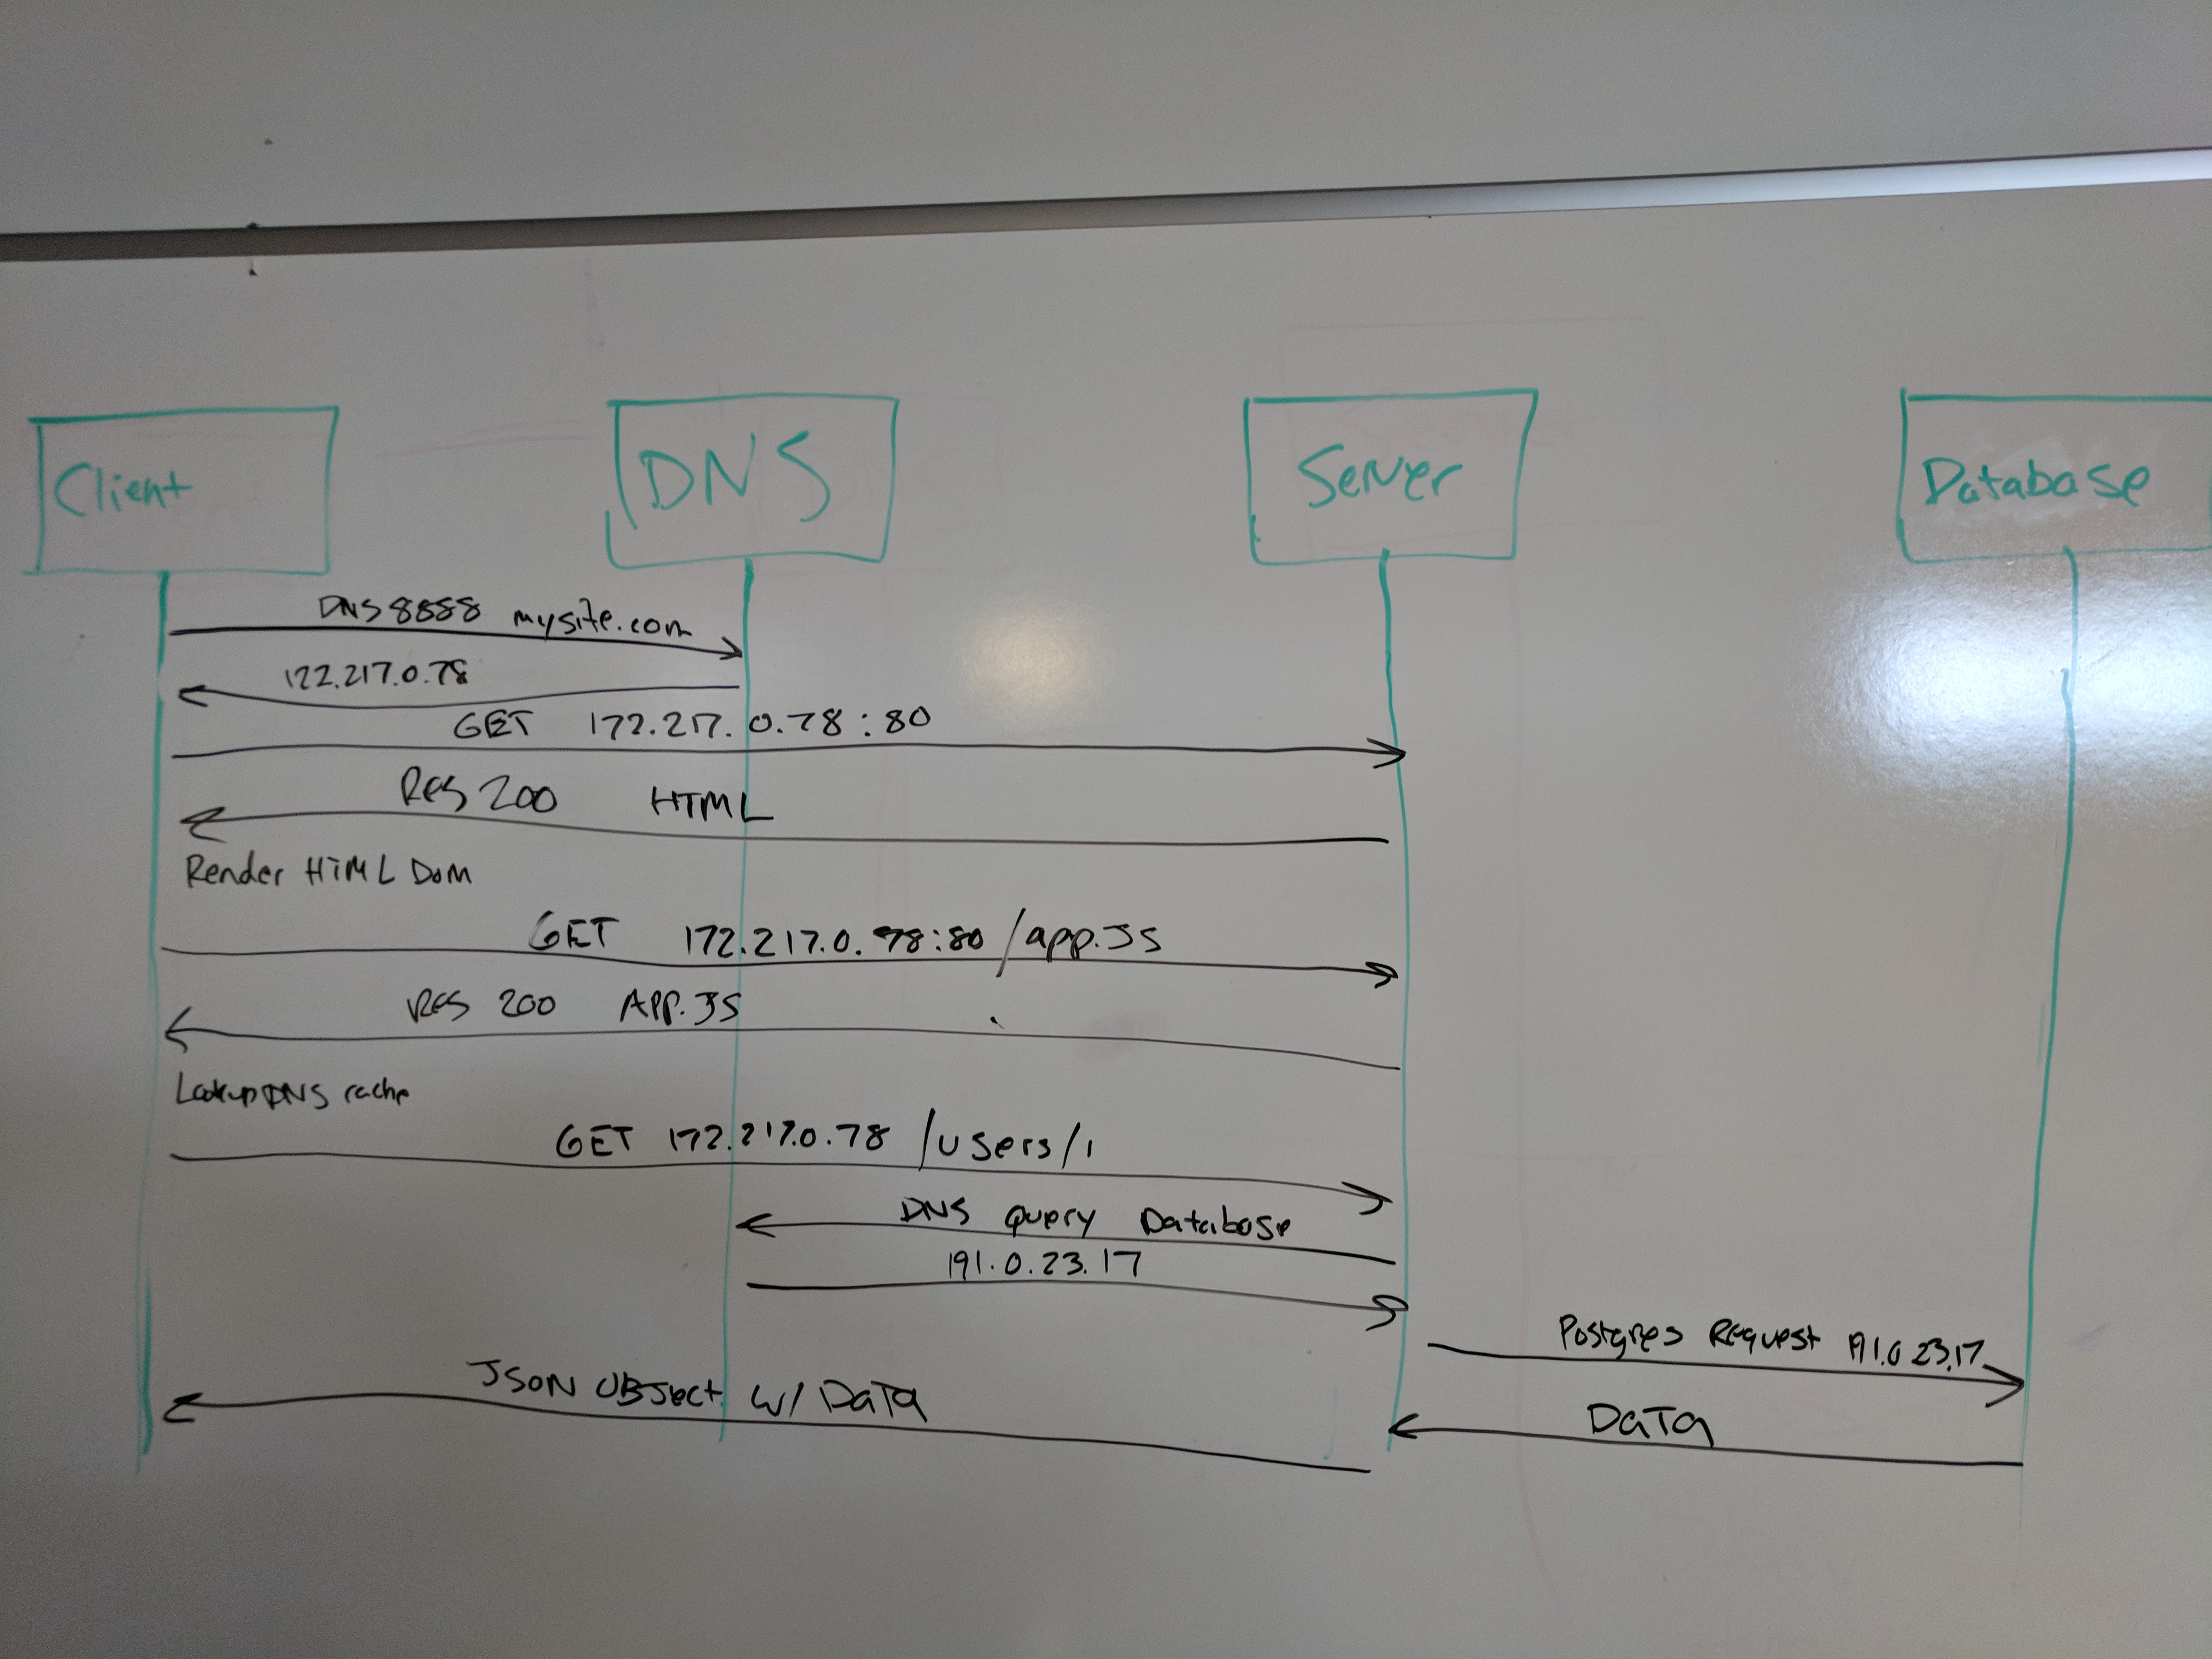 Client
DNS
Server
Database
DNS 8888 mysite.com
122.217.0.78
GET 172.217.0.78:80
Res 200 HTML
Render HTML Dom
GET 172.217.0.78:80 /app.JS
RES 200 APP.JS
Lookup DNS cache
GET 172.217.0.78 /users/1
DNS query Database
191.0.23.17
Postgres Request 191.0.23.17
JSON OBJect w/ DaTa
DaTa